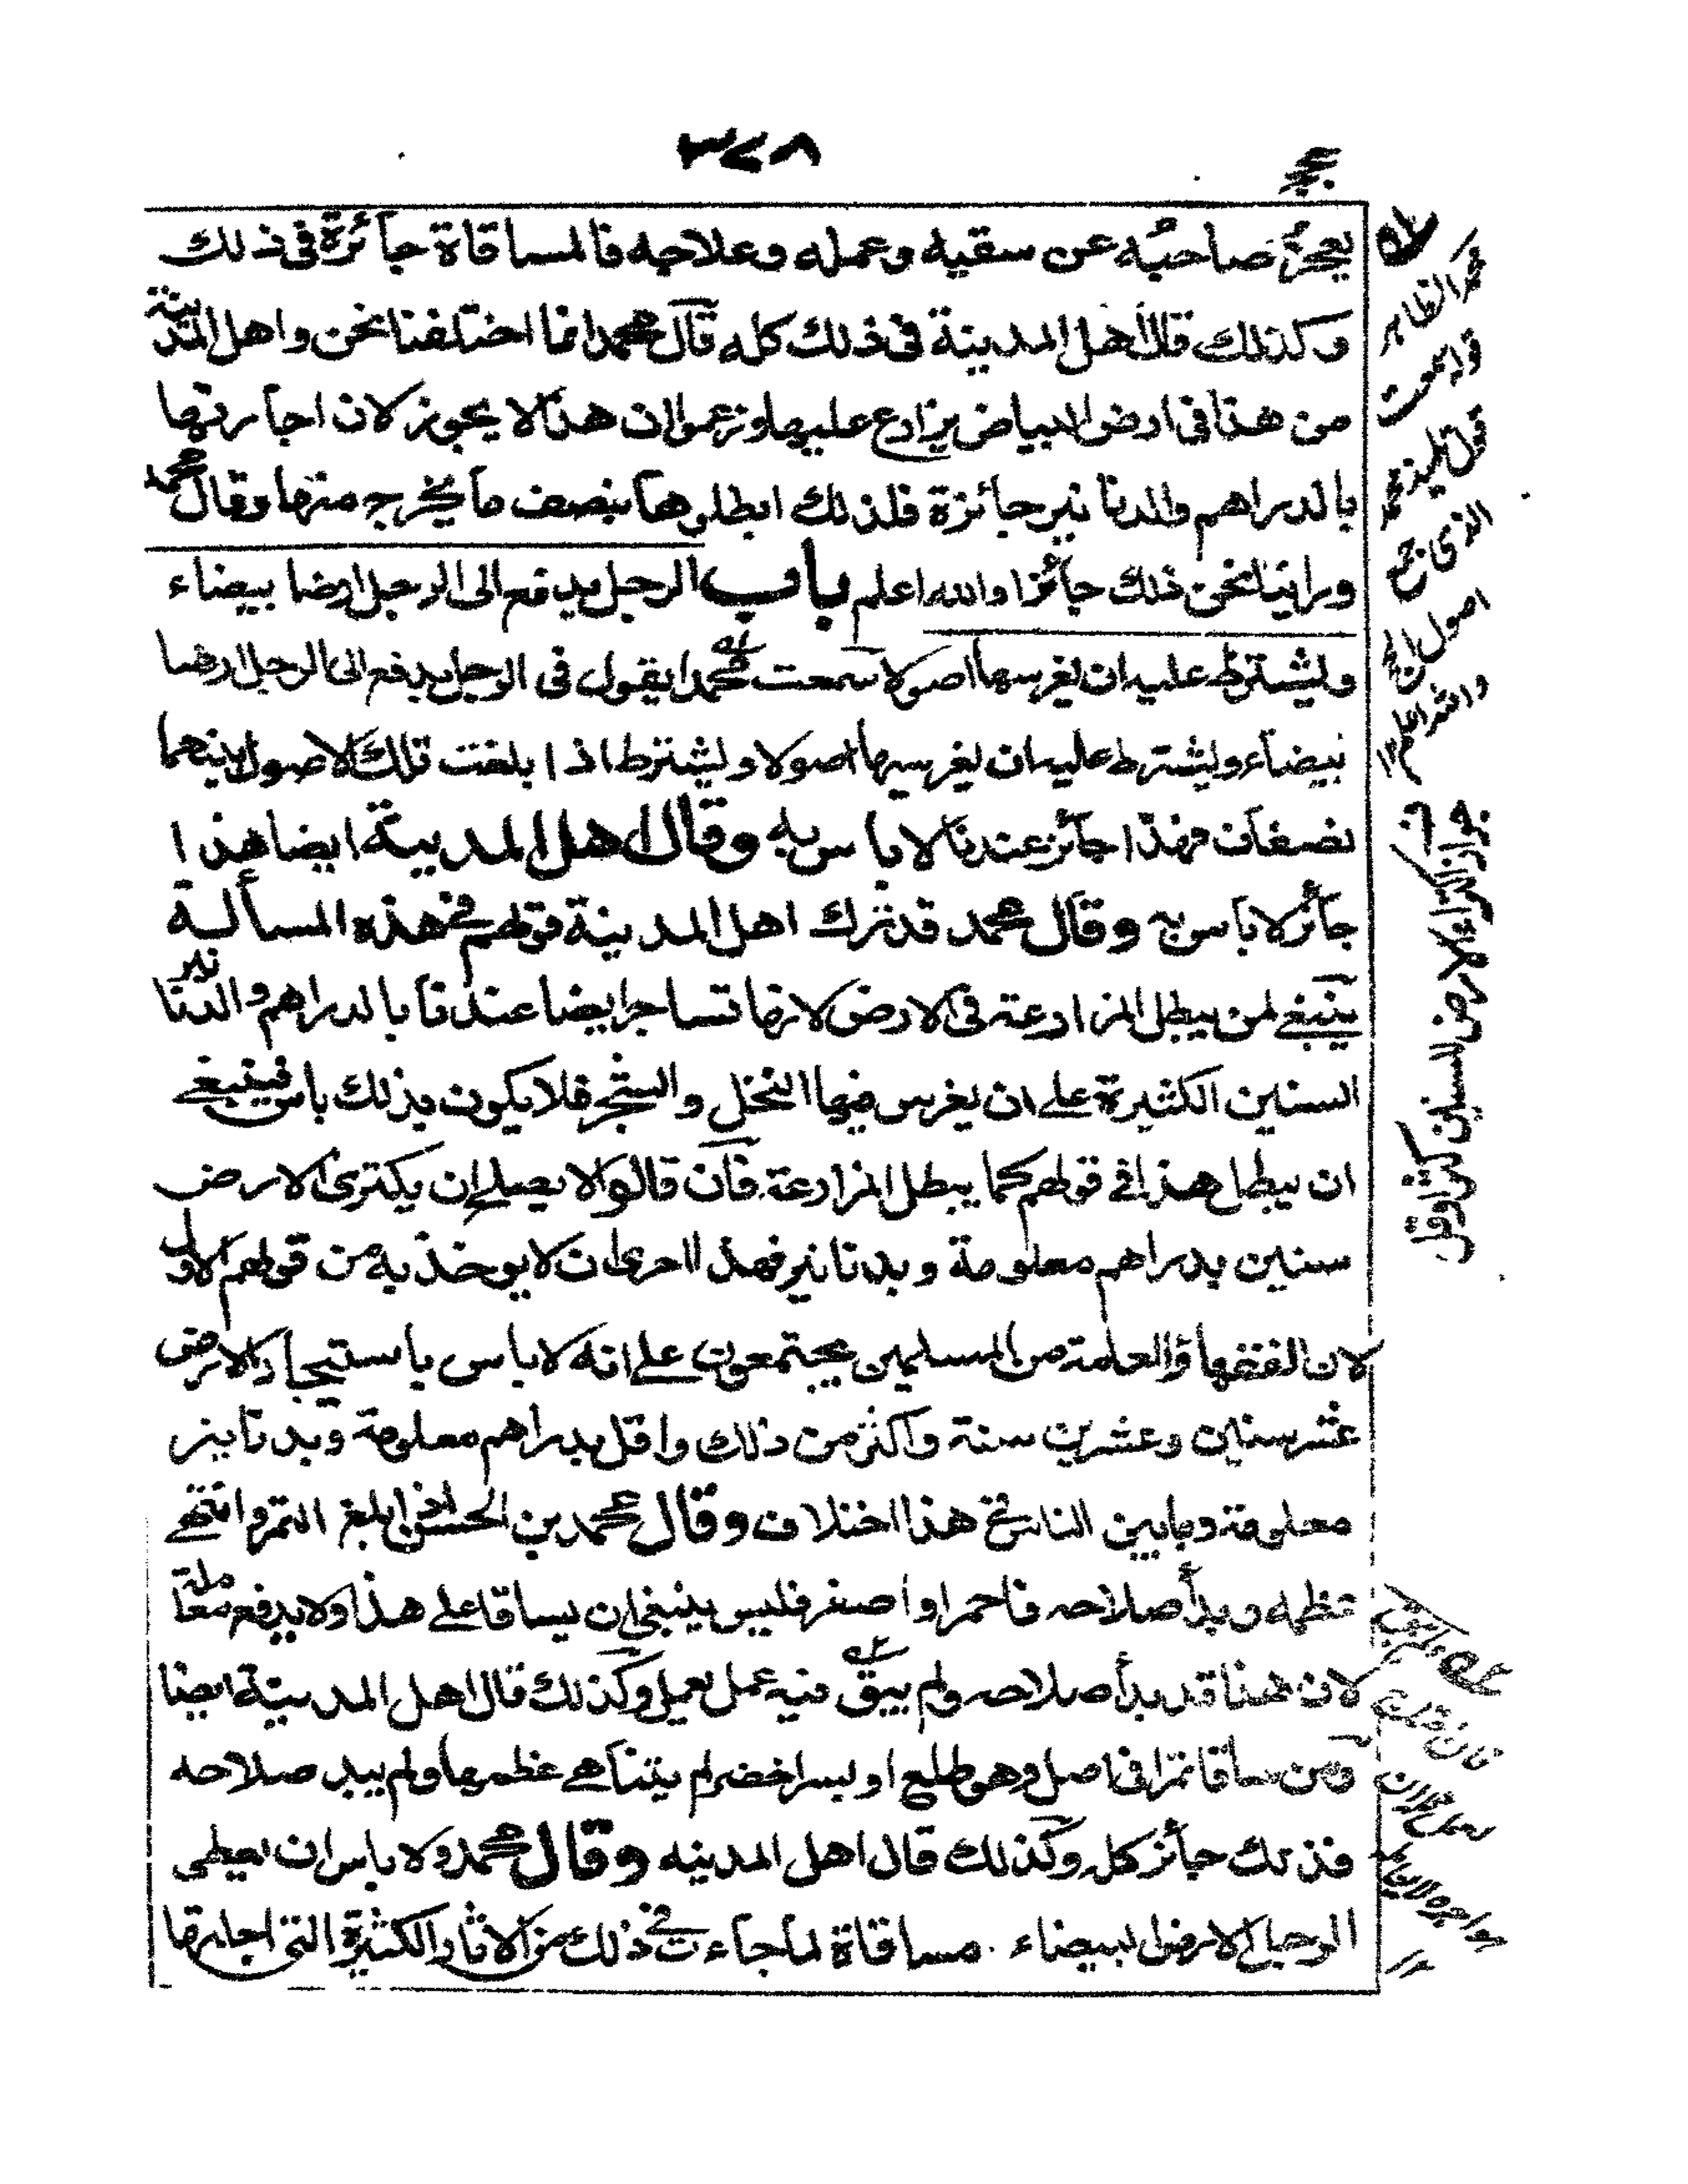 ٣٧٨
يعجز صاحبه عن سقيه وعمله وعلاجه فالمساقاة جائزة فى ذلك
وكذلك قال اهل المدينة فى ذلك كله قال محمد انما اختلفنا نحن واهل المدينة
من هذا فى ارض البياض يزارع عليها وزعموا ان هذا لا يجوز لان اجارتها
بالدراهم والدنانير جائزة فلذلك ابطلوها بنصف ما يخرج منها وقال محمد
ورأينا نحن ذلك جائزا والله اعلم باب الرجل يدفع الى الرجل ارضا بيضاء
ويشترط عليه ان يغرسها اصولا سمعت محمدا يقول فى الرجل يدفع الى الرجل ارضا
بيضاء ويشترط عليه ان يغرسها اصولا ويشترط اذا بلغت تلك الاصول بينهما
نصفان فهذا جائز عندنا لا باس به وقال اهل المدينة ايضا هذا
جائز لا باس به وقال محمد قد ترك اهل المدينة قولهم فى هذه المسألة
ينبغى لمن يبطل المزارعة فى الارض لانها تستاجر ايضا عندنا بالدراهم والدنانير
السنين الكثيرة على ان يغرس فيها النخل والشجر فلا يكون بذلك باس فينبغى
ان يبطل هذا فى قولهم كما يبطل المزارعة فان قالوا لا يصلح ان يكترى الارض
سنين بدراهم معلومة وبدنانير فهذا احرى ان لا يوخذ به من قولهم الاول
لان الفقهاء والعامة من المسلمين مجتمعون على انه لا باس باستيجار الارض
عشر سنين وعشرين سنة واكثر من ذلك واقل بدراهم معلومة وبدنانير
معلومة وما بين الناس فى هذا اختلاف وقال محمد بن الحسن اذا بلغ التمر وانتهى
عظمه وبدأ صلاحه فاحمر او اصفر فليس ينبغى ان يساقا على هذا ولا يدفع معاملة
لان هذا قد بدأ صلاحه ولم يبق فيه عمل يعمل وكذلك قال اهل المدينة ايضا
ومن ساقا تمرا فى اصل وهو طلع او بسر اخضر لم يتناهى عظمها ولم يبد صلاحه
فذلك جائز كله وكذلك قال اهل المدينه وقال محمد ولا باس ان يعطى
الرجل الارض البيضاء مساقاة لما جاء فى ذلك من الاثار الكثيرة التى اجازتها
الظاهر
قوله سمعت
قول تلميذ محمد
الذى جمع
اصول
والله اعلم ١٢
جواز اكتراء الارض السنين كثر او قل